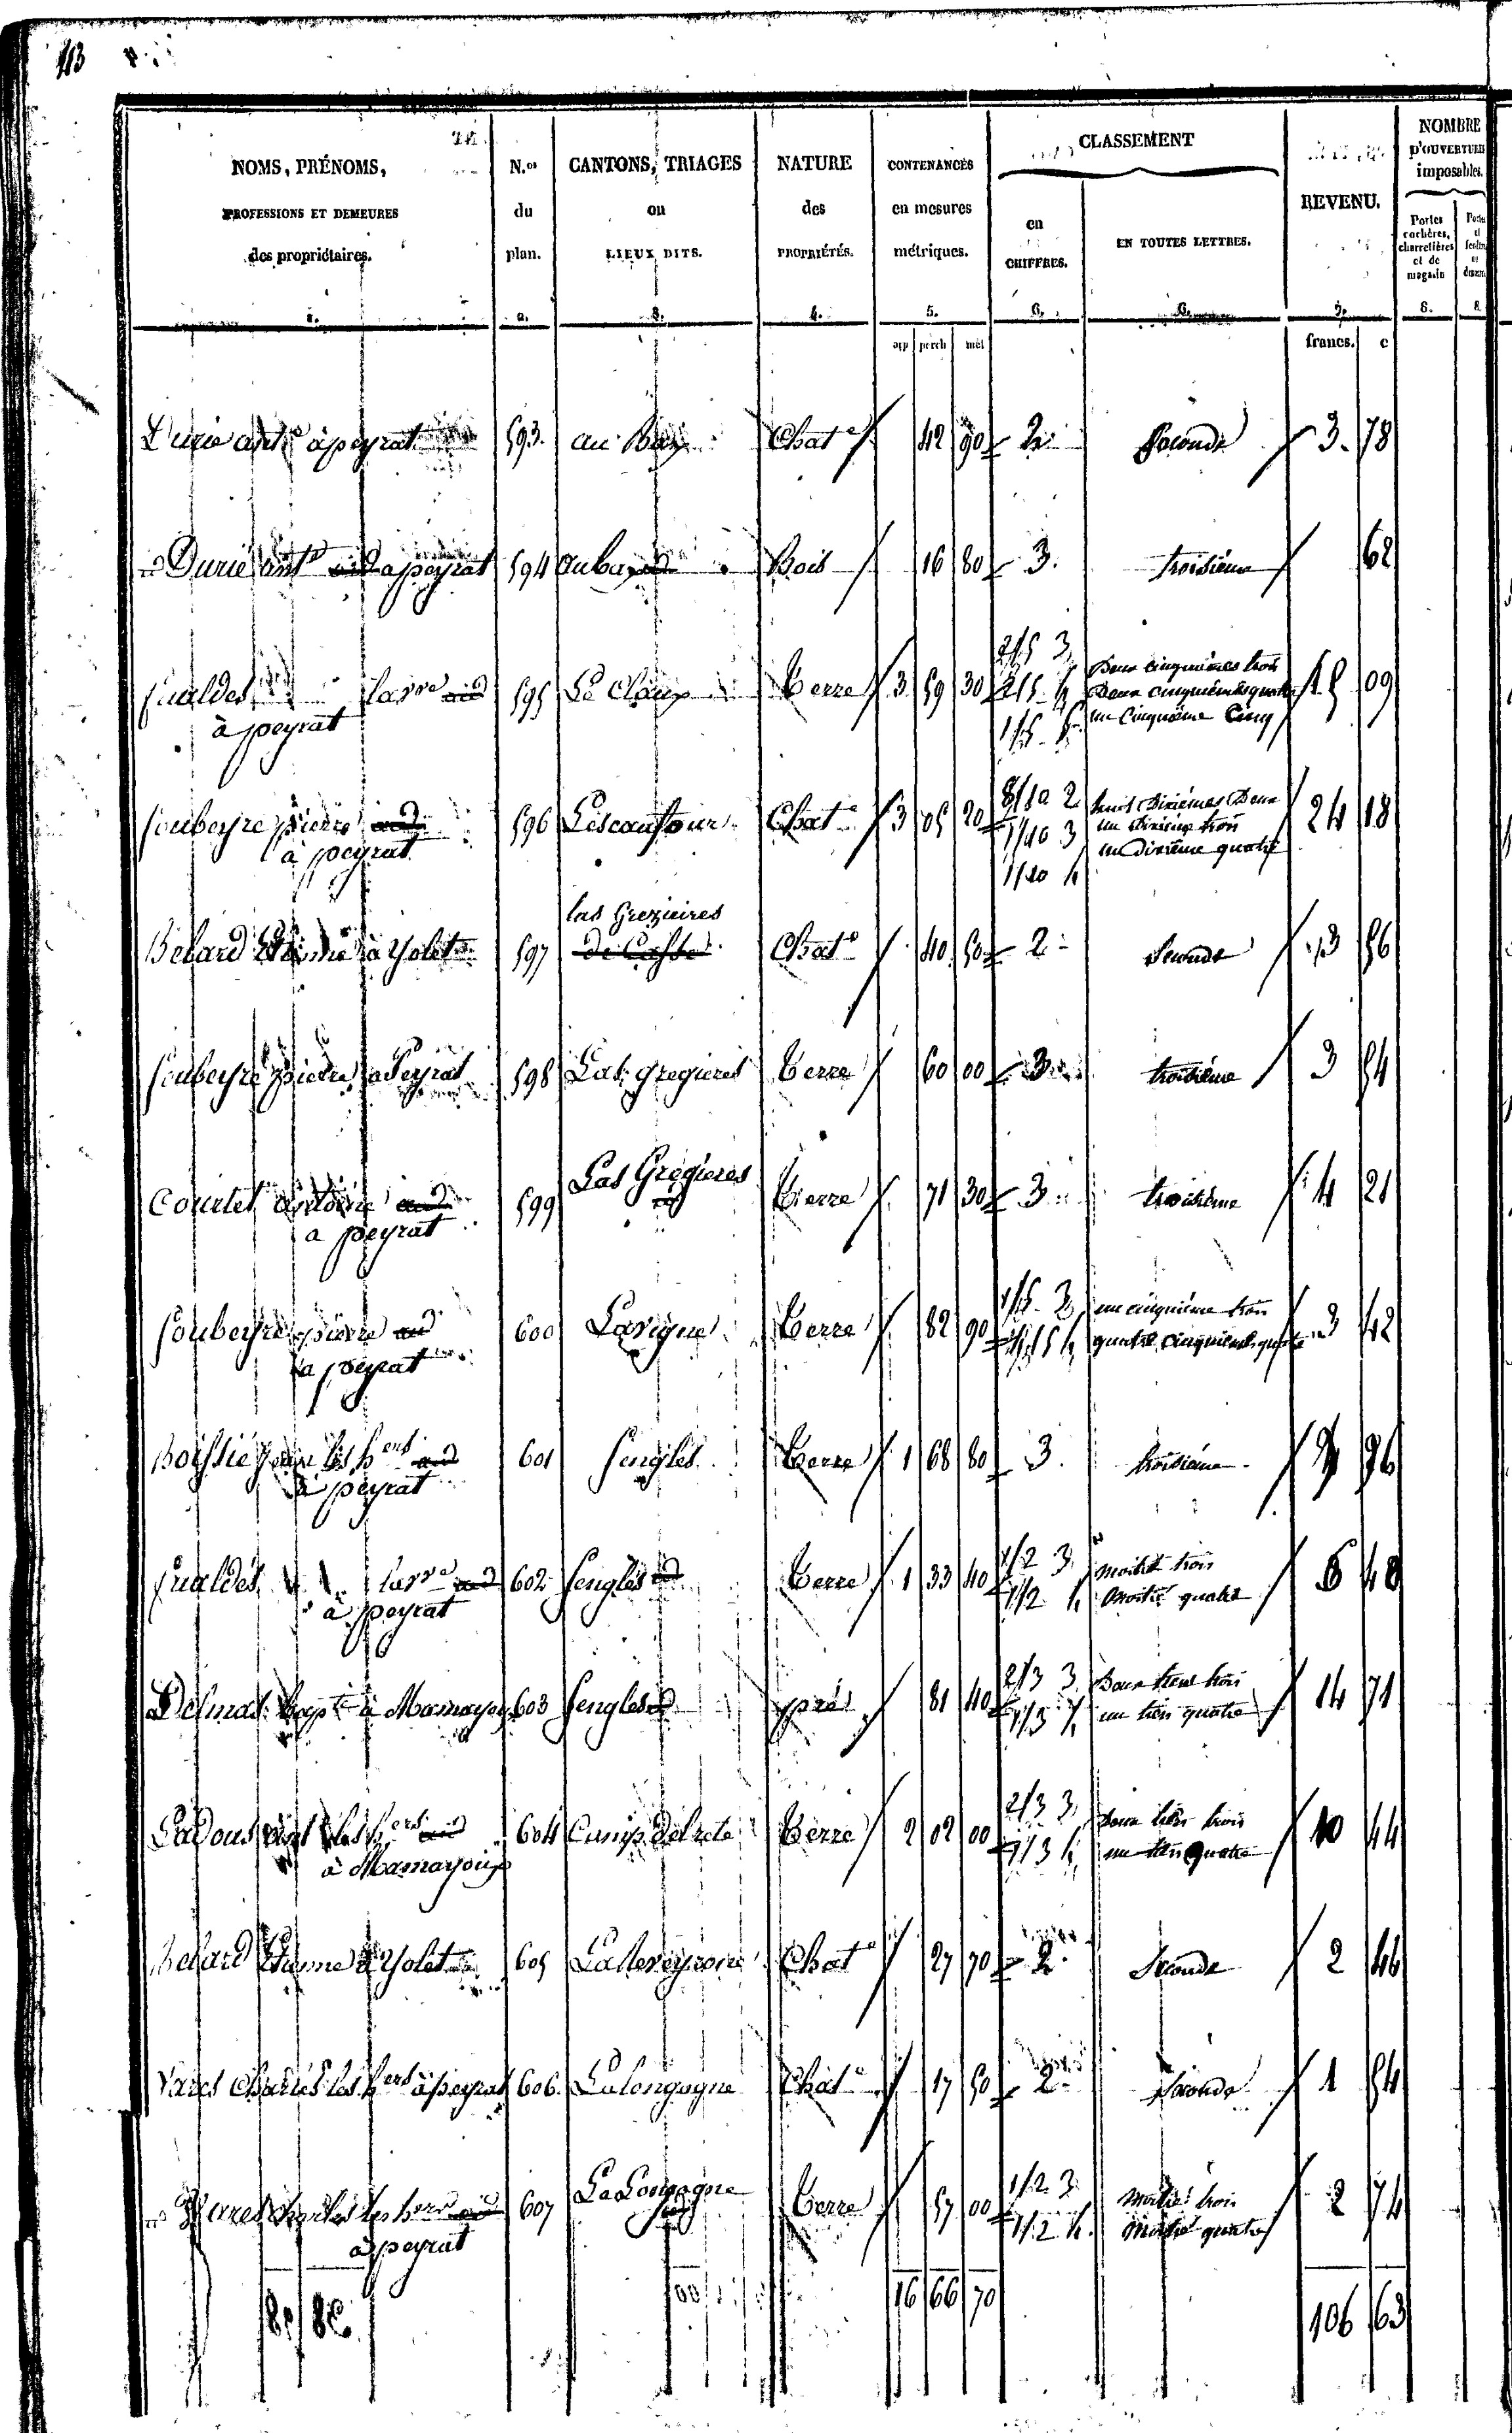 113
NOMS, PRÉNOMS, PROFESSIONS ET DEMEURES des propriétaires. 1.
N.os du plan. 2.
CANTONS, TRIAGES ou LIEUX DITS. 3.
NATURE des PROPRIÉTÉS. 4.
CONTENANCES en mesures métriques. 5.
CLASSEMENT
en CHIFFRES. 6.
EN TOUTES LETTRES. 6.
REVENU. 7.
NOMBRE D'OUVERTURES imposables.
Portes cochères, charretières et de magasin 8.
arp perch mèt francs. c
Durie ant.e à peyrat 593. au Bax Chat.e 42 90 2. Seconde 3. 78
Durie ant.e à peyrat 594 au bax Bois 16 80 3. troisième 62
fualdes la vve 595 Le Claux Terre 3 59 30 2/5 3 Deux cinquièmes trois 15 09
à peyrat 2/5 4 Deux cinquièmes quatre
1/5 5 un Cinquième Cinq
Soubeyre pierre 596 Chat.e 3 05 20 8/10 2 huit Dixièmes Deux 24 18
à peyrat 1/10 3 un dixième trois
1/10 4 un Dixième quatre
las Grezieires
Belard Etienne à Yolet 597 Chat.e 40 50 2 Seconde 3 56
Soubeyre pierre a Peyrat 598 Las gregieres Terre 60 00 3 troisième 3 54
Courtet Antoine 599 Las Gregieres Terre 71 30 3 troisième 4 21
a peyrat
Soubeyre pierre 600 Lavigne Terre 82 90 1/5 3 un cinquième trois 3 42
a peyrat 4/5 4 quatre cinquièmes quatre
Boissié jean les hers 601 Sengles Terre 1 68 80 3. troisième 9 96
à peyrat
fualdes la vve 602 Sengles Terre 1 33 40 1/2 3 moitié trois 6 48
à peyrat 1/2 4 Moitié quatre
Delmas Bapt.e à Mamayoux 603 Sengles pré 81 40 2/3 3 Deux tiers trois 14 71
1/3 4 un tiers quatre
Ladous ant les hers 604 Camp delrete Terre 2 02 00 2/3 3 Deux tiers trois 10 44
à Mamayoux 1/3 4 un tiers quatre
Belard Etienne à Yolet 605 Laveveyroire Chat.e 27 70 2. Seconde 2 46
Vares Charles les hers à peyrat 606 Lalongagne Chat.e 17 50 2 Seconde 1 54
Vares Charles les hers 607 La Longagne Terre 57 00 1/2 3 Moitié trois 2 74
à peyrat 1/2 4. Moitié quatre
16 66 70 106 63